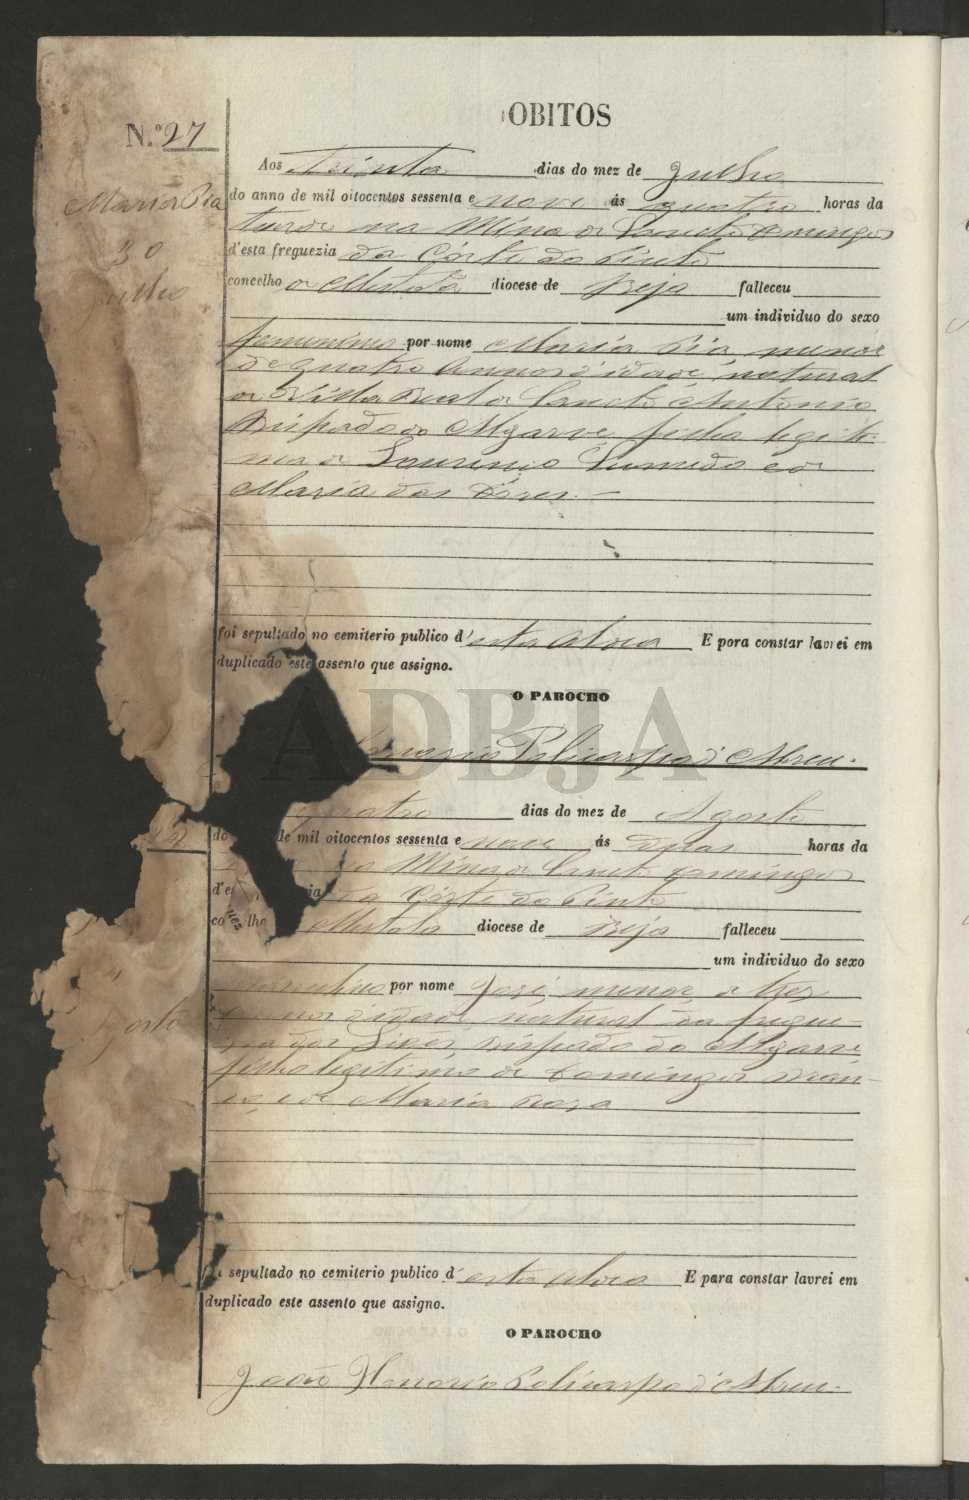 OBITOS
N.º 27
Maria Pia
30
Julho
Aos trinta dias do mez de Julho
do anno de mil oitocentos sessenta e nove ás quatro horas da
tarde na Mina de Sancto Domingos
d'esta freguezia da Côrte do Pinto
concelho de Mertola diocese de Beja falleceu
um individuo do sexo
femenino por nome Maria Pia, menor
de quatro annos d'idade, natural
de Villa Real de Sancto Antonio
Bispado do Algarve, filha legiti-
ma de Lourenço e de
Maria das Dores. —
foi sepultado no cemiterio publico d'esta aldea E pora constar lavrei em
duplicado este assento que assigno.
O PAROCHO
Honorio Policarpo d'Abreu.
ADBJA
quatro dias do mez de Agosto
do de mil oitocentos sessenta e nove ás duas horas da
Mina de Sancto Domingos
d'e ia da Côrte do Pinto
co lho Mertola diocese de Beja falleceu
um individuo do sexo
masculino por nome José, menor de tres
annos d'idade, natural da fregue-
zia de Bispado do Algarve
filho legitimo de Domingos
e de Maria Roza
sepultado no cemiterio publico d'esta aldea E para constar lavrei em
duplicado este assento que assigno.
O PAROCHO
João Honorio Policarpo d'Abreu.